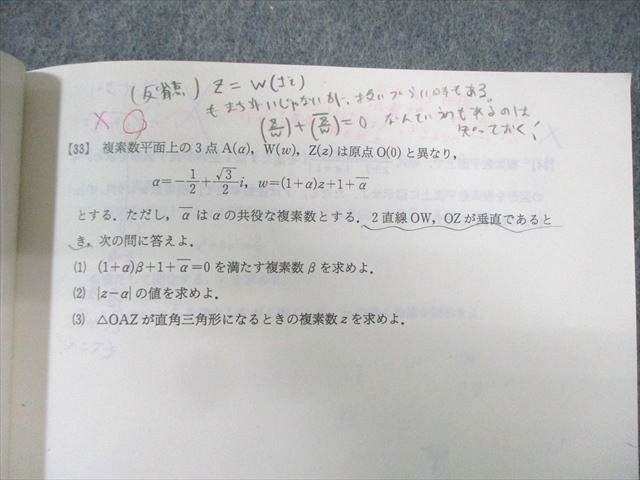 (反省点) Z = W(ぎi)
もまちがいじゃないが、扱いづらい時もある。
(z/w) + (z/w)‾ = 0 なんていうのもあるのは
知っておく！
× O
【33】 複素数平面上の3点A(α)，W(w)，Z(z)は原点O(0)と異なり，
α=-1/2+√3/2 i，w=(1+α)z+1+α̅
とする．ただし，α̅ はαの共役な複素数とする．2直線OW，OZが垂直であると
き，次の問に答えよ．
(1) (1+α)β+1+α̅=0を満たす複素数βを求めよ．
(2) |z-α|の値を求めよ．
(3) △OAZが直角三角形になるときの複素数zを求めよ．